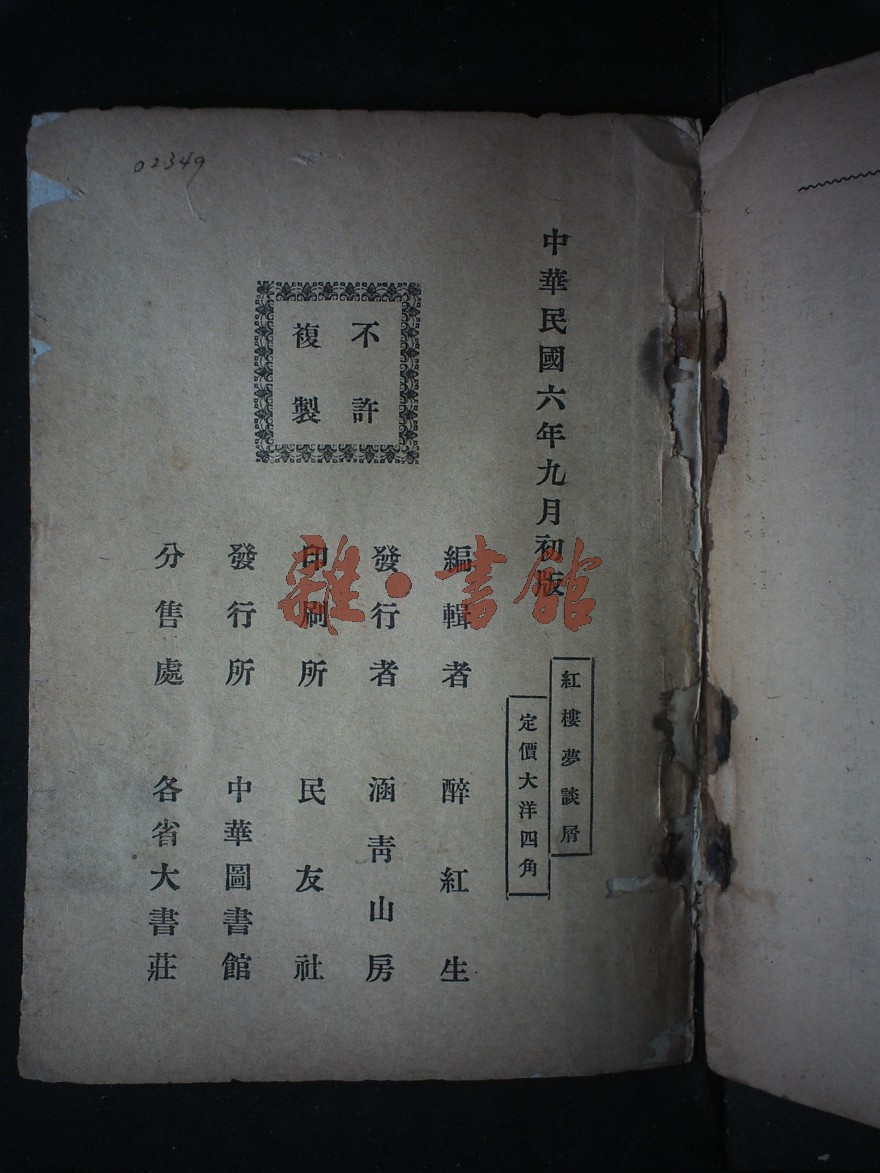 中華民國六年九月初版
紅樓夢談屑
定價大洋四角
編輯者 醉紅生
發行者 涵青山房
印刷所 民友社
發行所 中華圖書館
分售處 各省大書莊
不許
複製
02349
雜·書館